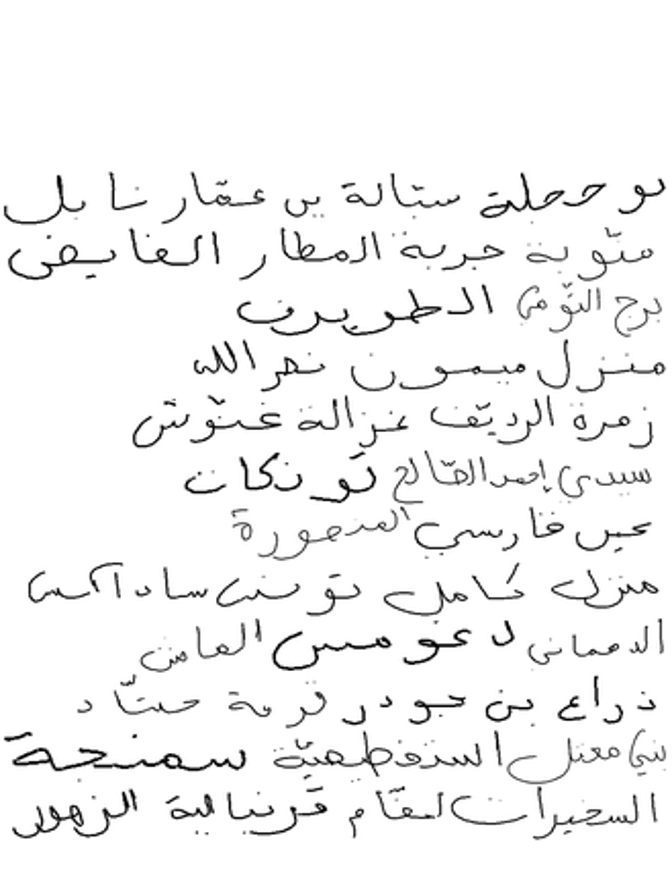 بو حجلة سبالة بن عمّار نابل
منّوبة جربة المطار الفايض
برج التّومي الطويرف
منزل ميمون نصر الله
زمرة الرديّف غزالة غنّوش
سيدي إحمد الصّالح تونكات
عين فارسي المنصورة
منزل كامل تونس
الدهماني دعوميس
ذراع بن جودر قرية حشّاد
بني معتل السنفطميّة سمنجة
السخيرات لمقام قرنبالية الزهور